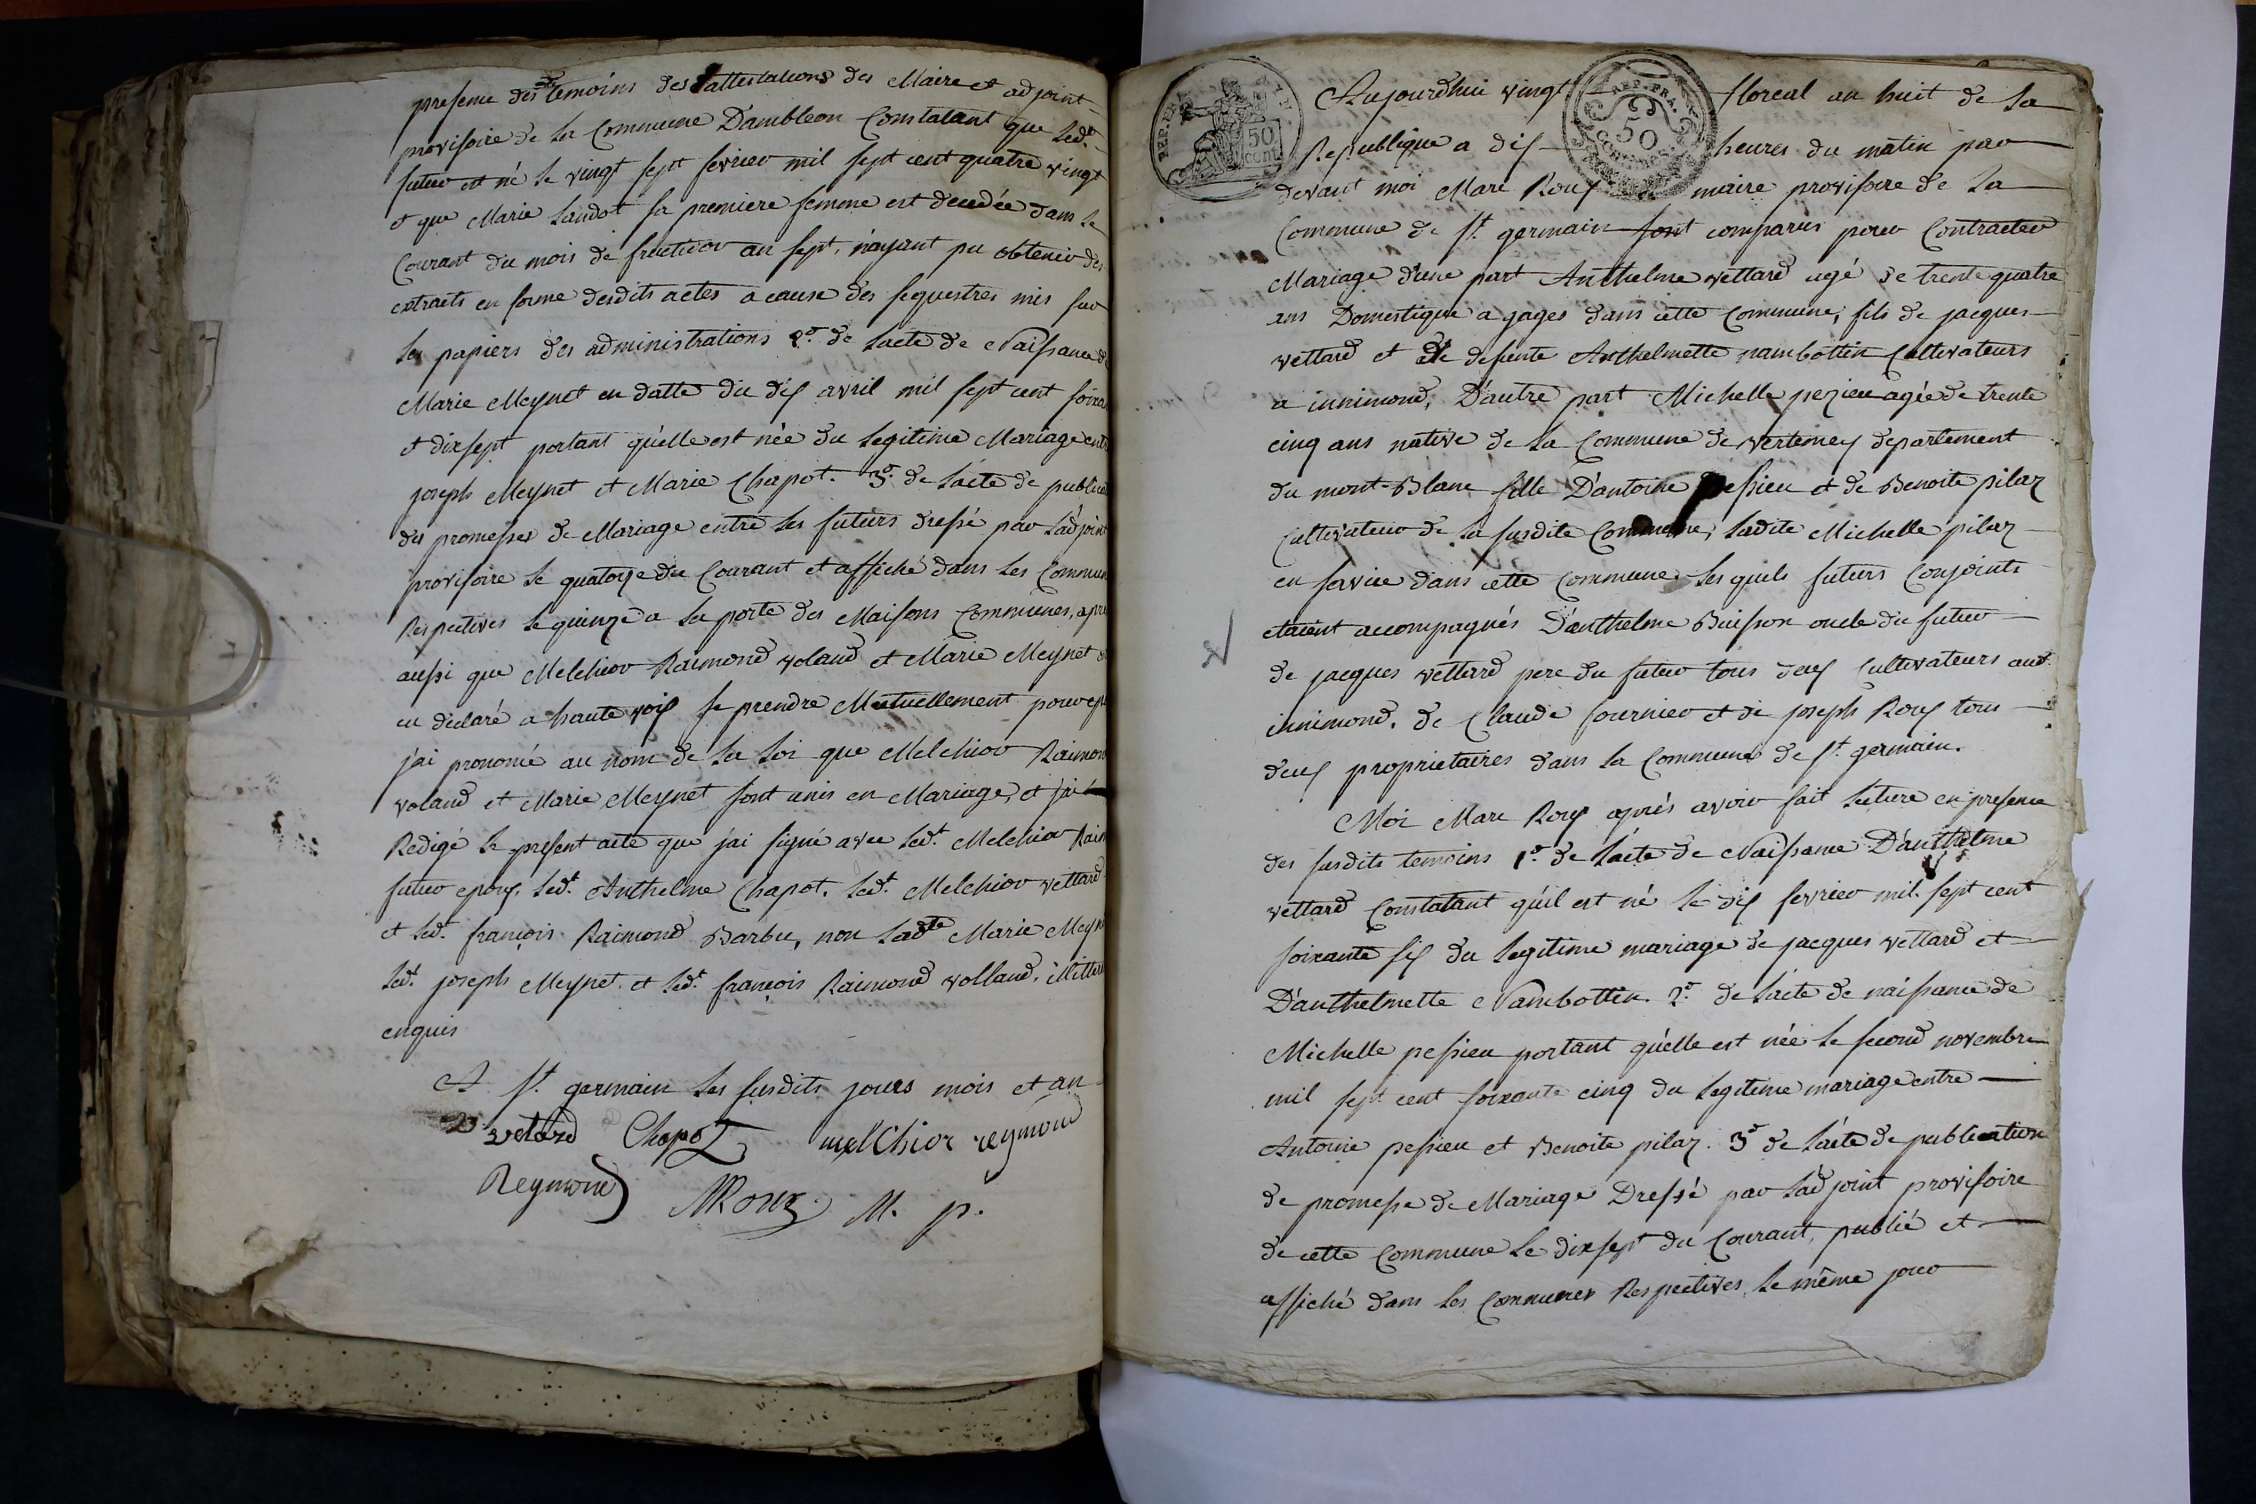 presence des temoins des attestations des Maire et adjoint
provisoire de la Commune D'ambleon Constatant que led.t
futur est né le vingt sept fevrier mil sept cent quatre vingt
et que Marie Landot sa premiere femme est decedée dans le
Courant du mois de fructidor an sept, n'ayant pu obtenir des
extraits en forme desdits actes a cause des sequestres mis sur
les papiers des administrations 2.o de l'acte de Naissance de
Marie Meynet en datte du dix avril mil sept cent soixan
et dixsept portant qu'elle est née du legitime Mariage entre
joseph Meynet et Marie Chapot. 3.o de l'acte de publica
des promesses de Mariage entre les futurs dressé par l'adjoint
provisoire le quatorze du Courant et affiché dans les Commun
Respectives le quinze a la porte des Maisons Communes, apre
aussi que Melchior Raimond voland et Marie Meynet
eu déclaré a haute voix se prendre Mutuellement pour ep
j'ai prononcé au nom de la loi que Melchior Raimond
voland et Marie Meynet sont unis en Mariage, et j'ai
Redigé le present acte que j'ai signé avec led.t Melchior Raim
futur epoux. led.t Anthelme Chapot. led.t Melchior vettard
et led.t françois Raimond Barbu, non ladte Marie Meyn
led.t joseph Meynet. et led.t françois Raimond volland. illitter
enquis
A S.t germain les susdits jours mois et an
vetard Chapot melchior reymond
Reymond MRoux. M. p.
REP. FRA.
50
cent.
REP. FRA.
50
Aujourdhui vingt floreal an huit de la
Republique a dix heures du matin par
devant moi Marc Roux maire provisoire de la
Commune de S.t germain sont comparus pour Contracter
Mariage d'une part Anthelme vettard agé de trente quatre
ans Domestique a gages dans cette Commune, fils de jacques
vettard et de defunte Anthelmette nambottin Cultivateurs
a innimond, D'autre part Michelle pezieu agée de trente
cinq ans native de la Commune de vertemex departement
du mont-Blanc fille D'antoine pessieu et de Benoite pilaz
Cultivateur de la susdite Commune, ladite Michelle pilaz
en service dans cette Commune. Les quels futurs Conjoints
etaient accompagnés D'anthelme Buisson oncle du futur
de jacques vettard pere du futur tous deux Cultivateurs aud.t
innimond. de Claude fournier et de joseph Roux tous
deux proprietaires dans la Commune de S.t germain.
Moi Marc Roux après avoir fait lecture en presence
des susdits temoins 1.o de l'acte de Naissance D'anthelme
vettard Constatant qu'il est né le dix fevrier mil sept cent
soixante six du legitime mariage de jacques vettard et
D'anthelmette Nambottin. 2.o de l'acte de naissance de
Michelle pessieu portant qu'elle est née le second novembre
mil sept cent soixante cinq du legitime mariage entre
Antoine pessieu et Benoite pilaz. 3.o de l'acte de publication
de promesse de Mariage Dressé par l'adjoint provisoire
de cette Commune le dixsept du Courant, publié et
affiché dans les Communes Respectives le même jour